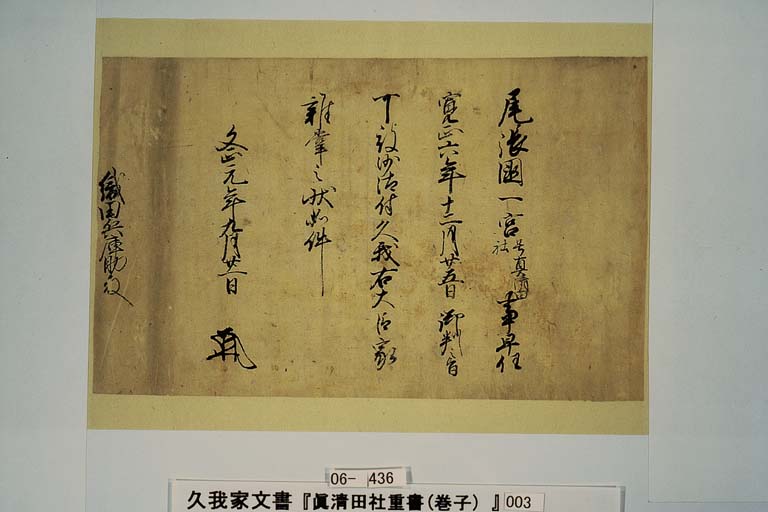 尾張國一宮号真清田社事早任
寛正六年十二月廿五日御判之旨
可被沙汰付久我右大臣家
雑掌之状如件
文正元年九月廿二日
織田兵庫助殿
06- 436
久我家文書『眞清田社重書(巻子) 』 003